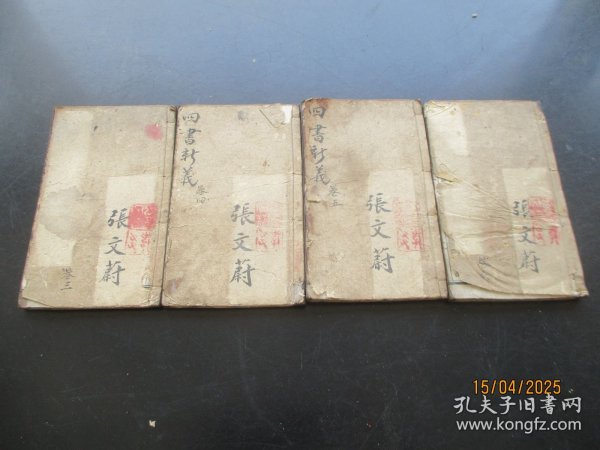 張文蔚
卷三
四書新義
卷四
張文蔚
四書新義
卷五
張文蔚
張文蔚
15/04/2025
孔夫子旧書网
www.kongfz.com